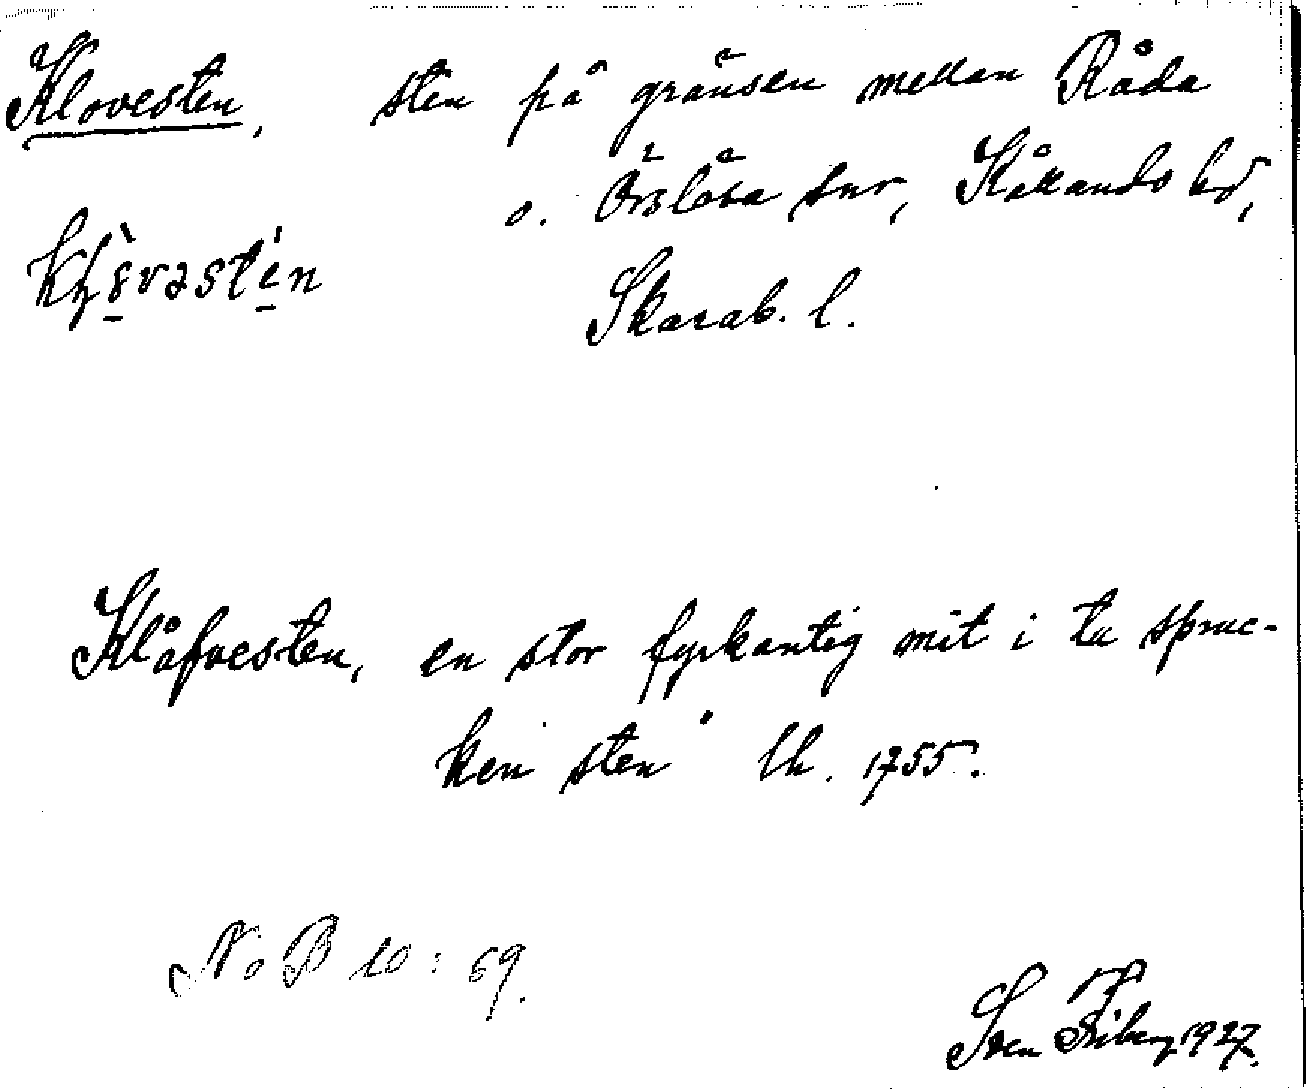 Klovesten, sten på gränsen mellan Råda
o. Örslösa snr, Kållands hd,
Skarab. l.
Klåfvesten, en stor fyrkantig mit i tu spruc-
ken sten" lh. 1755.
NoB 10: 59.
Sven Fiberg 1927.